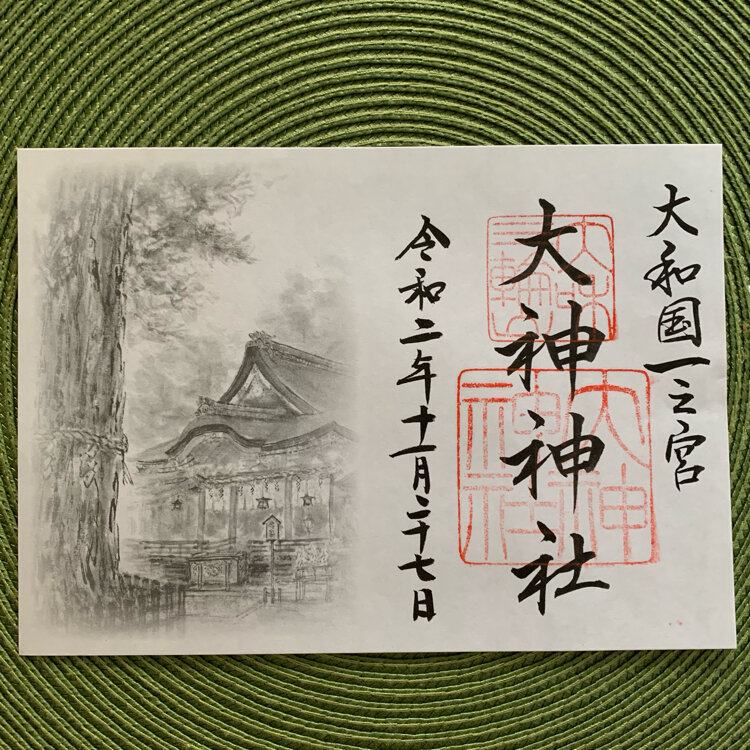 大和国一之宮
大神神社
大神
神社
令和二年十一月二十七日